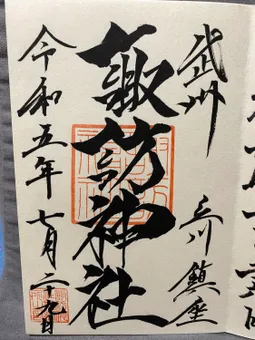 武州 立川 鎮座
諏訪神社
令和五年 七月二十九日